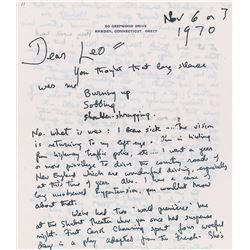 90 DEEPWOOD DRIVE
HAMDEN, CONNECTICUT 06517
Nov 6 or 7
1970
Dear Leo=
You thought that long silence
was me
Burning up
Sobbing
shoulder-shrugging.
No. what is was: I been sick on the vision
is returning to my left eye. I'm in hiding
for highway traffic police, etc. I went a year
now privilege to drive the country roads of
New England which are wonderful driving, especially
at this time of year also. I have a case of
any unwatched Hypertension, you wouldn't know
about that.
We've had two 'world premières' here
at the Shubert theater how you once had suspense
might. First Carol Channing spent four woeful
Days in a play adapted from the French. She's